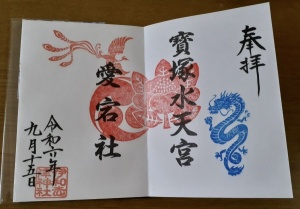 奉拝
寳塚水天宮
愛宕社
令和六年
九月十五日